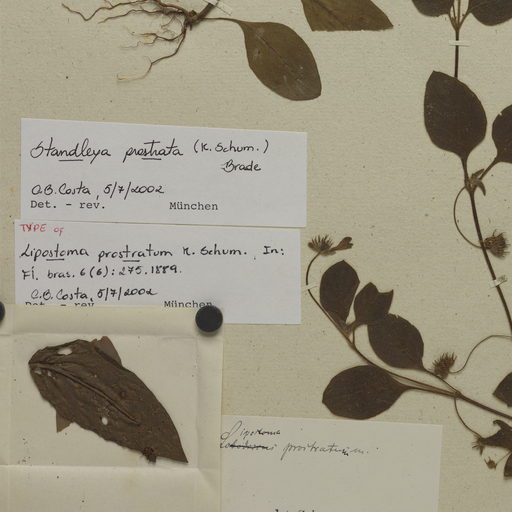 Standleya prostrata (K. Schum.)
Brade
C.B. Costa, 5/7/2002
Det. - rev. München
TYPE of
Lipostoma prostratum K. Schum., In:
Fl. bras. 6(6): 275. 1889.
C.B. Costa, 5/7/2002
Det. - rev. München
Lipostoma
prostratum.